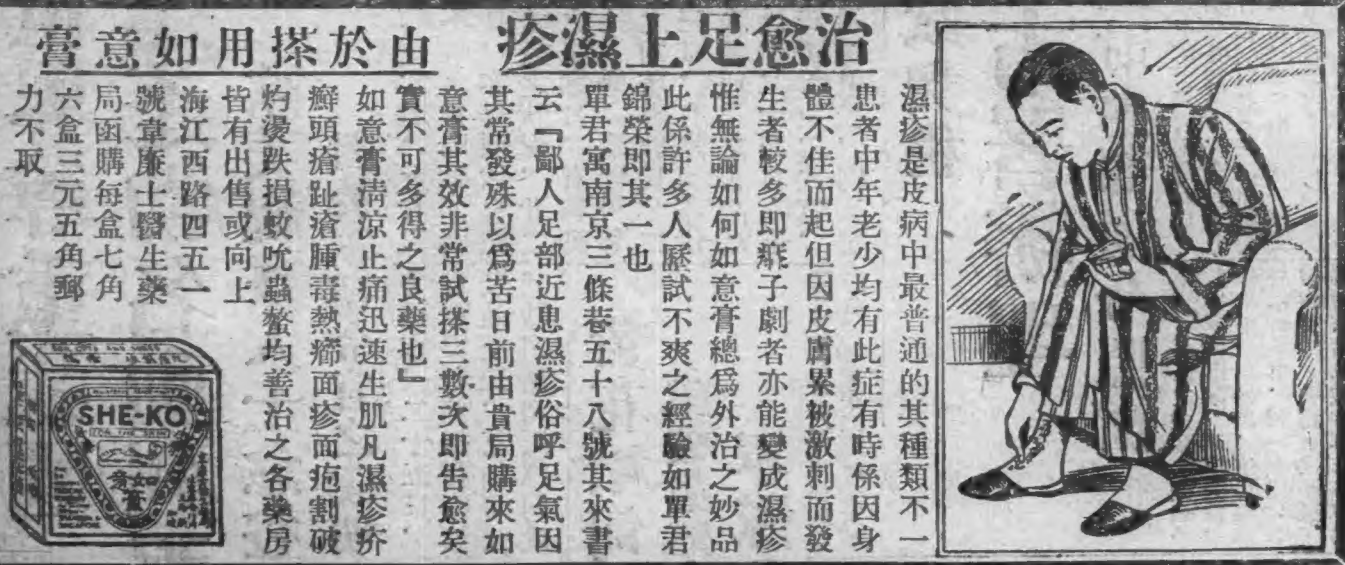 治愈足上濕疹
由於搽用如意膏
濕疹是皮病中最普通的其種類不一
患者中年老少均有此症有時係因身
體不佳而起但因皮膚累被激刺而發
生者較多即痱子劇者亦能變成濕疹
惟無論如何如意膏總爲外治之妙品
此係許多人歷試不爽之經驗如單君
錦榮即其一也
單君寓南京三條巷五十八號其來書
云『鄙人足部近患濕疹俗呼足氣因
其常發殊以爲苦日前由貴局購來如
意膏其效非常試搽三數次即告愈矣
實不可多得之良藥也』
如意膏清涼止痛迅速生肌凡濕疹疥
癬頭瘡趾瘡腫毒熱癤面疹面疱割破
灼燙跌損蚊吮蟲螫均善治之各藥房
皆有出售或向上
海江西路四五一
號韋廉士醫生藥
局函購每盒七角
六盒三元五角郵
力不取
SHE-KO
FOR THE SKIN
如意膏